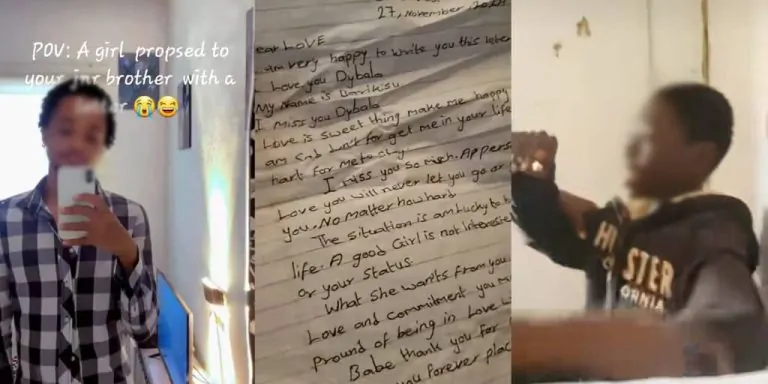 POV: A girl propsed to
your jnr brother with a
😭😆
27, November, 202
ear LOVE
am very happy to write you this leter
I love you Dybala
My Name is Barikisu
I miss you Dybala
Love is sweet thing make me happy
am Sad don't for get me in your life
hart for me to
I miss you so much. A pers
Love you will never let you go or
you. No matter how hard
The situation is am Lucky to h
life. A good Girl is not Interest
or your Status.
What She wants from you
Love and commitment you m
Pround of being in Love w
Babe thank you for
you forever plac
H STER
ORNIA